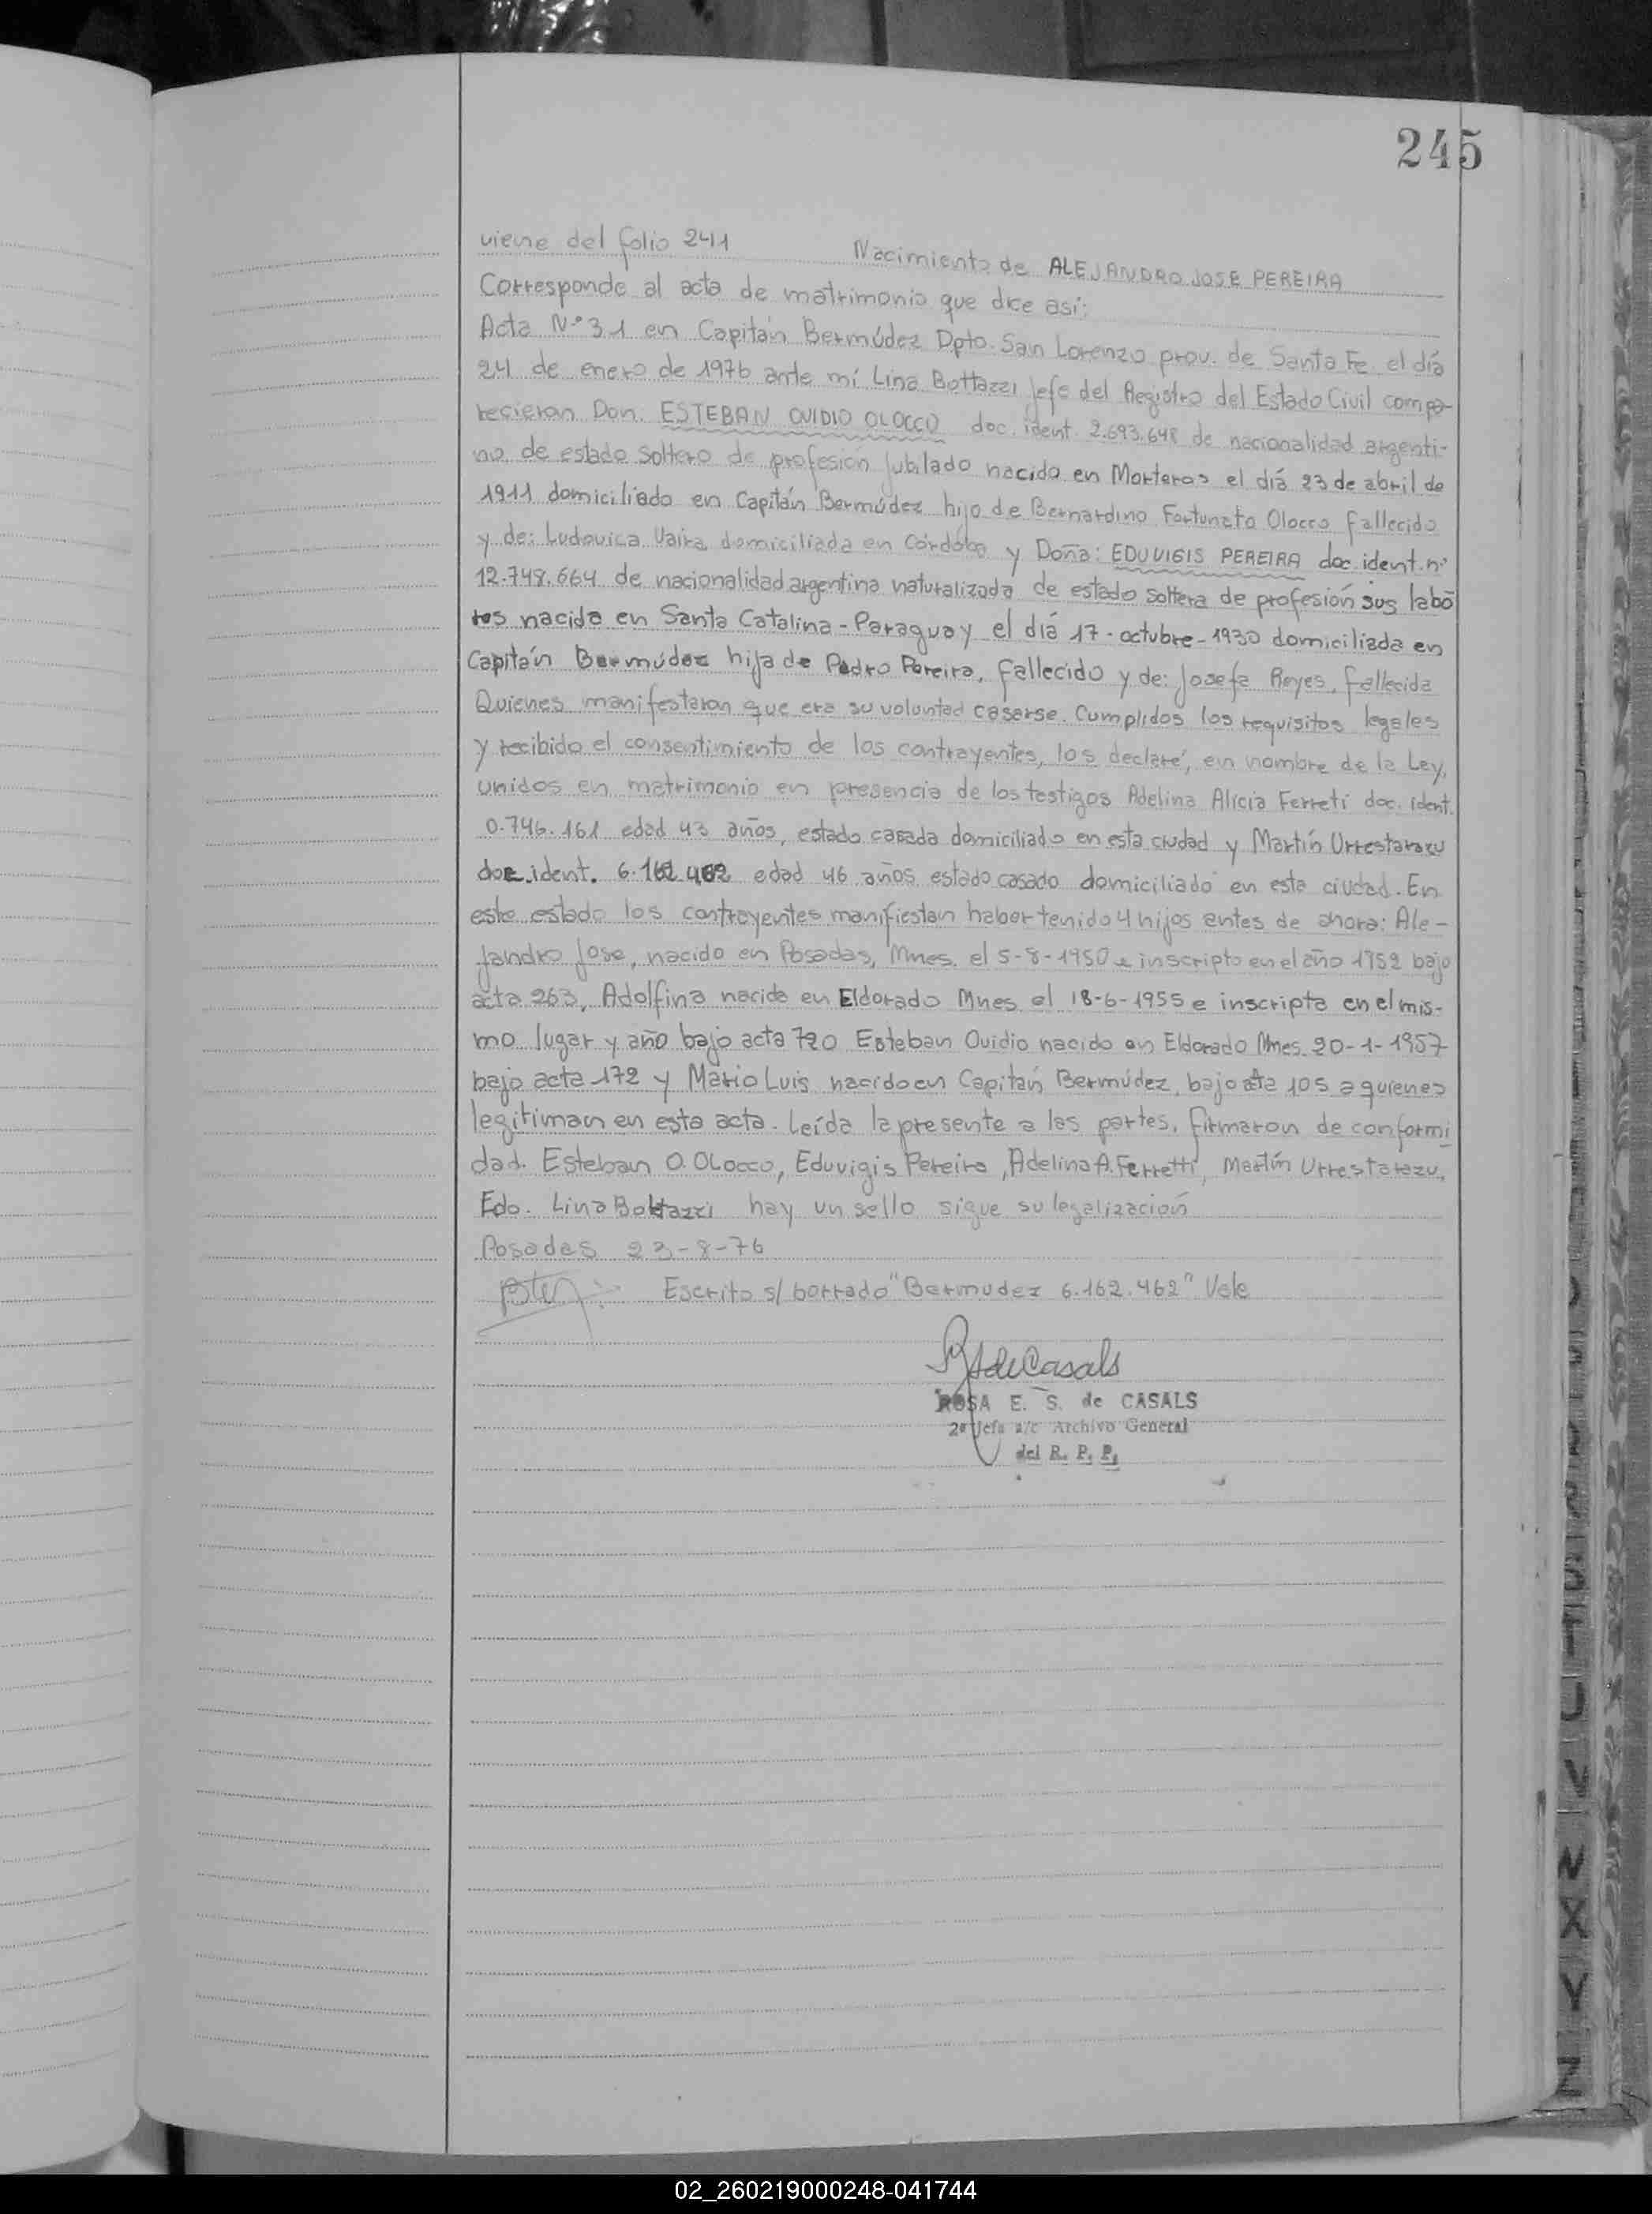 245
viene del folio 241 Nacimiento de ALEJANDRO JOSE PEREIRA
Corresponde al acta de matrimonio que dice así:
Acta N° 31 en Capitán Bermúdez Dpto. San Lorenzo prov. de Santa Fe el día
24 de enero de 1976 ante mí Lina Bottazzi Jefe del Registro del Estado Civil compa-
recieron Don. ESTEBAN OVIDIO OLOCCO doc. ident. 2.693.648 de nacionalidad argenti-
no de estado soltero de profesión Jubilado nacido en Morteros el día 23 de abril de
1911 domiciliado en Capitán Bermúdez hijo de Bernardino Fortunato Olocco fallecido
y de: Ludovica Vaira domiciliada en Córdoba y Doña: EDUVIGIS PEREIRA doc. ident. n°
12.748.664 de nacionalidad argentina naturalizada de estado soltera de profesión sus labo
res nacida en Santa Catalina - Paraguay el día 17 - octubre - 1930 domiciliada en
Capitán Bermúdez hija de Pedro Pereira, fallecido y de: Josefa Reyes, fallecida
Quienes manifestaron que era su voluntad casarse. Cumplidos los requisitos legales
y recibido el consentimiento de los contrayentes, los declaré, en nombre de la Ley,
unidos en matrimonio en presencia de los testigos Adelina Alicia Ferreti doc. ident.
0.746.161 edad 43 años, estado casada domiciliado en esta ciudad y Martín Urrestarazu
doc. ident. 6.162.462 edad 46 años estado casado domiciliado en esta ciudad. En
este estado los contrayentes manifiestan haber tenido 4 hijos antes de ahora: Ale-
jandro Jose, nacido en Posadas, Mnes. el 5-8-1950 e inscripto en el año 1952 bajo
acta 263, Adolfina nacida en Eldorado Mnes el 18-6-1955 e inscripta en el mis-
mo lugar y año bajo acta 720 Esteban Ovidio nacido en Eldorado Mnes. 20-1-1957
bajo acta 172 y Mario Luis nacido en Capitán Bermúdez, bajo ata 105 a quienes
legitiman en esta acta. Leída la presente a las partes, firmaron de conformi
dad. Esteban O. Olocco, Eduvigis Pereira, Adelina A. Ferretti, Martín Urrestarazu,
Fdo. Lina Bottazzi hay un sello sigue su legalización
Posadas 23-8-76
Escrito s/ borrado "Bermudez 6.162.462" Vale
RS de Casals
ROSA E. S. de CASALS
2° Jefa a/c Archivo General
del R. P. P.
N
X
Y
Z
02_260219000248-041744